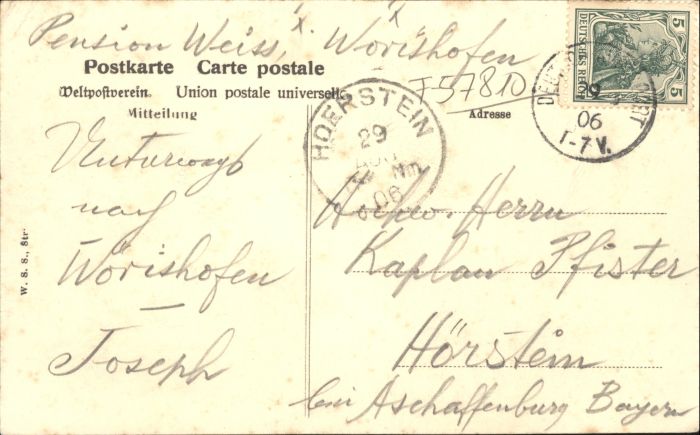 Pension Weiss, Wörishofen
Postkarte Carte postale
Weltpostverein. Union postale universelle
Mitteilung
Adresse
J57810
HOERSTEIN
29
Nm.
06
5
5
DEUTSCHES REICH
29
06
7 V.
Unterwegs
nach
Wörishofen
Joseph
Hochw. Herrn
Kaplan Pfister
Hörstein
bei Aschaffenburg Bayern
W. S. S., Str